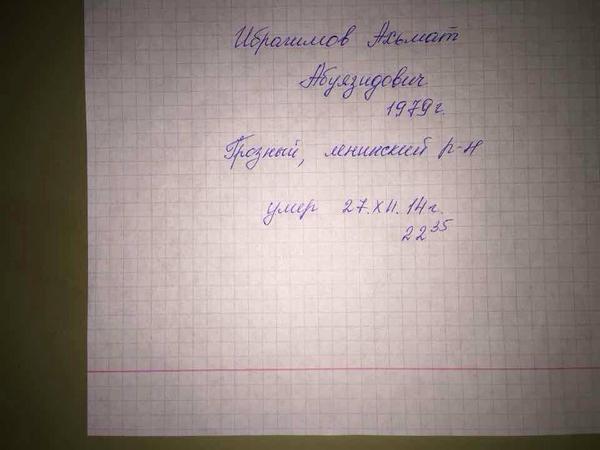 Ибрагимов Ахьмат
Абуязидович
1979 г.
Грозный, ленинский р-н
умер 27.XII.14 г.
22³⁵